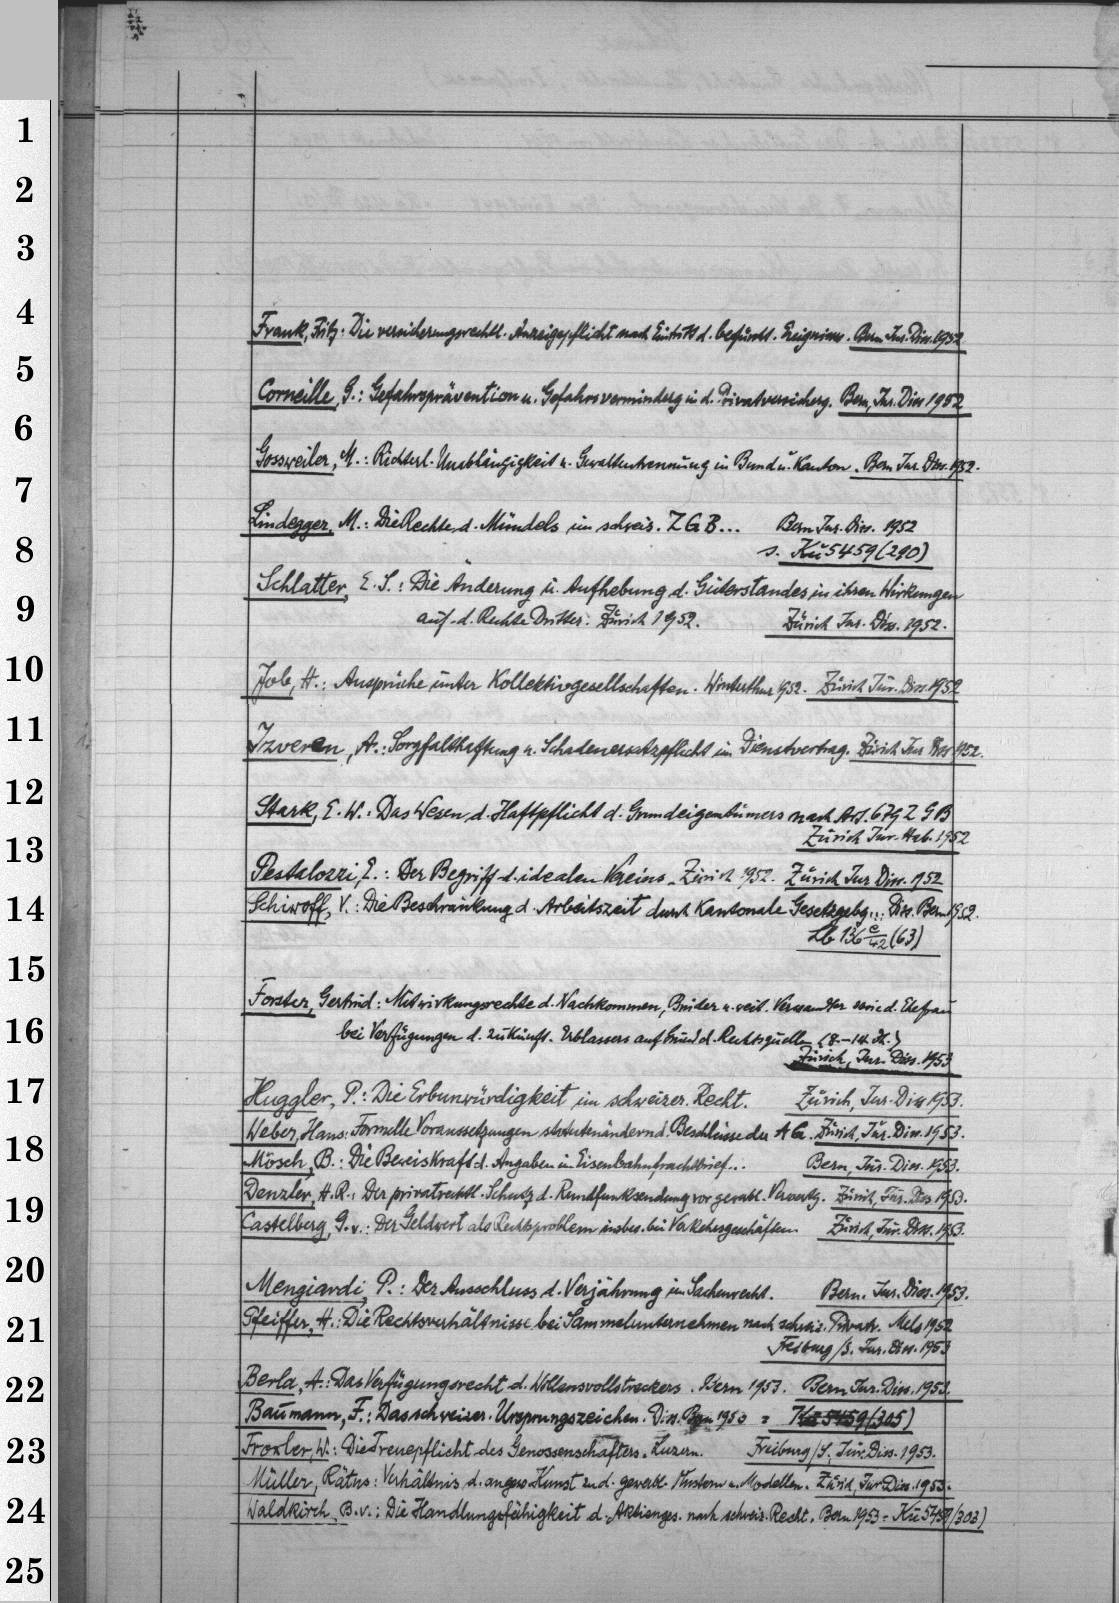 1
2
3
4
Frank, Fritz: Die versicherungsrechtl. Anzeigepflicht nach Eintritt d. befürcht. Ereignisses. Bern Jur. Diss. 1952
5
Corneille, G.: Gefahrsprävention u. Gefahrsverminderg in d. Privatversicherg. Bern, Jur. Diss 1952
6
Gossweiler, M.: Richterl. Unabhängigkeit u. Gewaltentrennung in Bund u. Kanton. Bern Jur. Diss. 1952.
7
Lindegger, M.: Die Rechte d. Mündels im schweiz. ZGB... Bern Jur. Diss. 1952
8
s. Kü 5459 (290)
Schlatter, E. S.: Die Änderung u. Aufhebung d. Güterstandes in ihren Wirkungen
9
auf d. Rechte Dritter. Zürich 1952. Zürich Jur. Diss. 1952.
10
Job, H.: Ansprüche unter Kollektivgesellschaften. Winterthur 1952. Zürich Jur. Diss. 1952
11
Izveren, A.: Sorgfaltshaftung u. Schadenersatzpflicht im Dienstvertrag. Zürich Jur Diss 1952.
12
Stark, E. W.: Das Wesen d. Haftpflicht d. Grundeigentümers nach Art. 679 ZGB
13
Zürich Jur. Hab. 1952
Pestalozzi, E.: Der Begriff d. idealen Vereins. Zürich 1952. Zürich Jur Diss. 1952
14
Schiwoff, V.: Die Beschränkung d. Arbeitszeit durch Kantonale Gesetzgebg... Diss. Bern 1952.
Lb 136 e/42 (63)
15
Forster, Gertrud: Mitwirkungsrechte d. Nachkommen, Brüder u. weit. Verwandter sowie d. Ehefrau
16
bei Verfügungen d. zukünft. Erblassers auf Grund d. Rechtsquellen (8.-14. Jh.)
Zürich, Jur. Diss. 1953
17
Huggler, P.: Die Erbunwürdigkeit im schweizer. Recht. Zürich, Jur. Diss 1953.
Weber, Hans: Formelle Voraussetzungen statutenändernd. Beschlüsse der AG. Zürich, Jur. Diss. 1953.
18
Mösch, B.: Die Beweiskraft d. Angaben im Eisenbahnfrachtbrief... Bern, Jur. Diss. 1953.
Denzler, H. R.: Der privatrechtl. Schutz d. Rundfunksendung vor gewerbl. Verwertg. Zürich, Jur. Diss 1953.
19
Castelberg, G. v.: Der Geldwert als Rechtsproblem insbes. bei Verkehrsgeschäften. Zürich, Jur. Diss. 1953.
20
Mengiardi, P.: Der Ausschluss d. Verjährung im Sachenrecht. Bern. Jur. Diss. 1953.
21
Pfeiffer, H.: Die Rechtsverhältnisse bei Sammelunternehmen nach schweiz. Privatr. Mels 1952
Freiburg /S. Jur. Diss. 1953
22
Berla, A.: Das Verfügungsrecht d. Willensvollstreckers. Bern 1953. Bern Jur. Diss. 1953.
Baumann, F.: Das schweizer. Ursprungszeichen. Diss. Bern 1953 = Kü 5459 (305)
23
Froxler, W.: Die Treuepflicht des Genossenschafters. Luzern. Freiburg /S, Jur. Diss. 1953.
Müller, Rätus: Verhältnis d. angew. Kunst zu d. gewerbl. Mustern u. Modellen. Zürich, Jur Diss. 1953.
24
Waldkirch, B. v.: Die Handlungsfähigkeit d. Aktienges. nach schweiz. Recht. Bern 1953 = Kü 5459 (303)
25